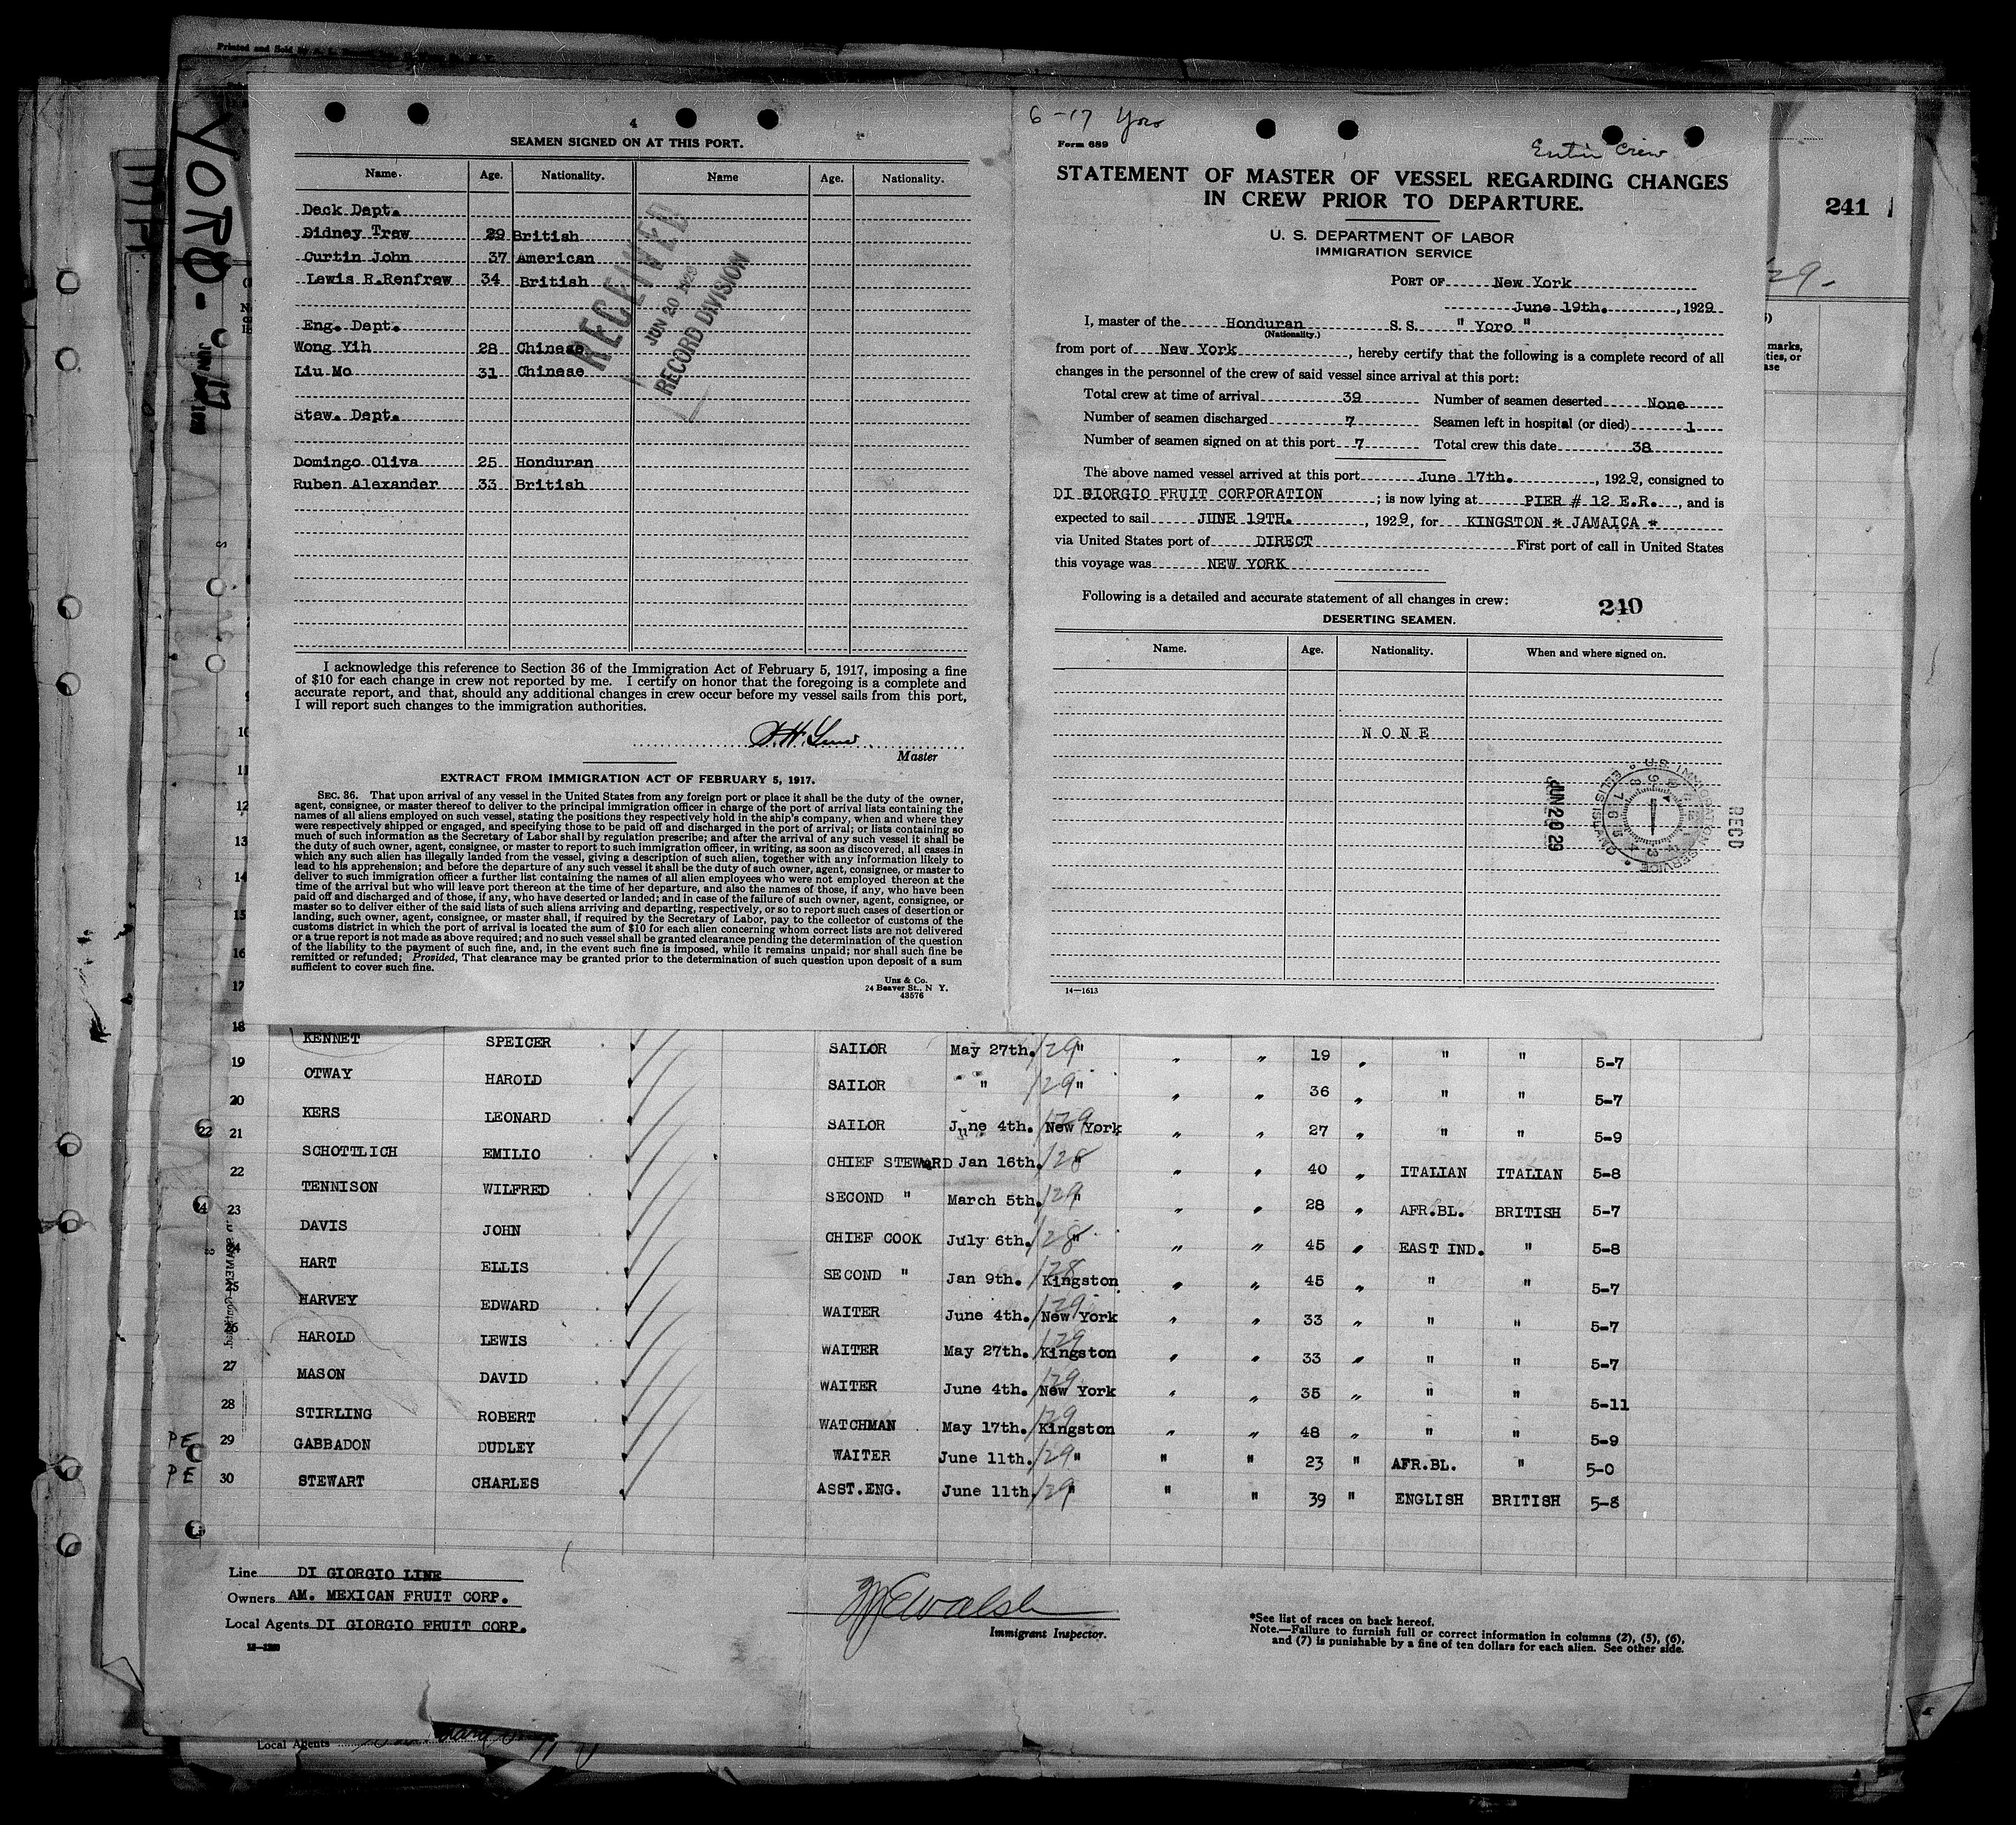 Printed and Sold by
YORO -
JUN 17
4
SEAMEN SIGNED ON AT THIS PORT.
Name. Age. Nationality. Name Age. Nationality.
Deck Dept.
Didney Trew 29 British
Curtin John 37 American
Lewis R.Renfrew 34 British
Eng. Dept.
Wong Yih 28 Chinese
Liu Mo 31 Chinese
Stew. Dept.
Domingo Oliva 25 Honduran
Ruben Alexander 33 British
RECEIVED
JUN 20 1929
RECORD DIVISION
I acknowledge this reference to Section 36 of the Immigration Act of February 5, 1917, imposing a fine
of $10 for each change in crew not reported by me. I certify on honor that the foregoing is a complete and
accurate report, and that, should any additional changes in crew occur before my vessel sails from this port,
I will report such changes to the immigration authorities.
Master
EXTRACT FROM IMMIGRATION ACT OF FEBRUARY 5, 1917.
SEC. 36. That upon arrival of any vessel in the United States from any foreign port or place it shall be the duty of the owner,
agent, consignee, or master thereof to deliver to the principal immigration officer in charge of the port of arrival lists containing the
names of all aliens employed on such vessel, stating the positions they respectively hold in the ship's company, when and where they
were respectively shipped or engaged, and specifying those to be paid off and discharged in the port of arrival; or lists containing so
much of such information as the Secretary of Labor shall by regulation prescribe; and after the arrival of any such vessel it shall be
the duty of such owner, agent, consignee, or master to report to such immigration officer, in writing, as soon as discovered, all cases in
which any such alien has illegally landed from the vessel, giving a description of such alien, together with any information likely to
lead to his apprehension; and before the departure of any such vessel it shall be the duty of such owner, agent, consignee, or master to
deliver to such immigration officer a further list containing the names of all alien employees who were not employed thereon at the
time of the arrival but who will leave port thereon at the time of her departure, and also the names of those, if any, who have been
paid off and discharged and of those, if any, who have deserted or landed; and in case of the failure of such owner, agent, consignee, or
master so to deliver either of the said lists of such aliens arriving and departing, respectively, or so to report such cases of desertion or
landing, such owner, agent, consignee, or master shall, if required by the Secretary of Labor, pay to the collector of customs of the
customs district in which the port of arrival is located the sum of $10 for each alien concerning whom correct lists are not delivered
or a true report is not made as above required; and no such vessel shall be granted clearance pending the determination of the question
of the liability to the payment of such fine, and, in the event such fine is imposed, while it remains unpaid; nor shall such fine be
remitted or refunded; Provided, That clearance may be granted prior to the determination of such question upon deposit of a sum
sufficient to cover such fine.
Unz & Co.
24 Beaver St., N Y.
43576
6-17 Yoro
Form 689
Entire Crew
STATEMENT OF MASTER OF VESSEL REGARDING CHANGES
IN CREW PRIOR TO DEPARTURE.
U. S. DEPARTMENT OF LABOR
IMMIGRATION SERVICE
PORT OF New York
June 19th. , 1929
I, master of the Honduran S.S. " Yoro "
(Nationality.)
from port of New York , hereby certify that the following is a complete record of all
changes in the personnel of the crew of said vessel since arrival at this port:
Total crew at time of arrival 39 Number of seamen deserted None
Number of seamen discharged 7 Seamen left in hospital (or died) 1
Number of seamen signed on at this port 7 Total crew this date 38
The above named vessel arrived at this port June 17th. , 1929, consigned to
DI GIORGIO FRUIT CORPORATION ; is now lying at PIER # 12 E.R. , and is
expected to sail JUNE 19TH. , 1929, for KINGSTON * JAMAICA *
via United States port of DIRECT First port of call in United States
this voyage was NEW YORK
Following is a detailed and accurate statement of all changes in crew: 240
DESERTING SEAMEN.
Name. Age. Nationality. When and where signed on.
N O N E
JUN 20 29
REC'D
14—1613
241
29-
marks,
ties, or
ase
10
11
12
13
14
15
16
17
18 KENNET SPEICER SAILOR May 27th. /29 " " " 19 " " " 5-7
19 OTWAY HAROLD SAILOR " /29 " " " 36 " " " 5-7
20 KERS LEONARD SAILOR June 4th. /29 New York " " 27 " " " 5-9
21 SCHOTTLICH EMILIO CHIEF STEWARD Jan 16th. /28 " " " 40 " ITALIAN ITALIAN 5-8
22 TENNISON WILFRED SECOND " March 5th. /29 " " " 28 " AFR.BL. BRITISH 5-7
23 DAVIS JOHN CHIEF COOK July 6th. /28 " " " 45 " EAST IND. " 5-8
24 HART ELLIS SECOND " Jan 9th. /28 Kingston " " 45 " " " 5-7
25 HARVEY EDWARD WAITER June 4th. /29 New York " " 33 " " " 5-7
26 HAROLD LEWIS WAITER May 27th. /29 Kingston " " 33 " " " 5-7
27 MASON DAVID WAITER June 4th. /29 New York " " 35 " " " 5-11
28 STIRLING ROBERT WATCHMAN May 17th. /29 Kingston " " 48 " " " 5-9
PE 29 GABBADON DUDLEY WAITER June 11th. /29 " " " 23 " AFR.BL. " 5-0
PE 30 STEWART CHARLES ASST.ENG. June 11th. /29 " " " 39 " ENGLISH BRITISH 5-8
Line DI GIORGIO LINE
Owners AM. MEXICAN FRUIT CORP.
Local Agents DI GIORGIO FRUIT CORP.
Walsh
Immigrant Inspector.
*See list of races on back hereof.
Note.—Failure to furnish full or correct information in columns (2), (5), (6),
and (7) is punishable by a fine of ten dollars for each alien. See other side.
Local Agents